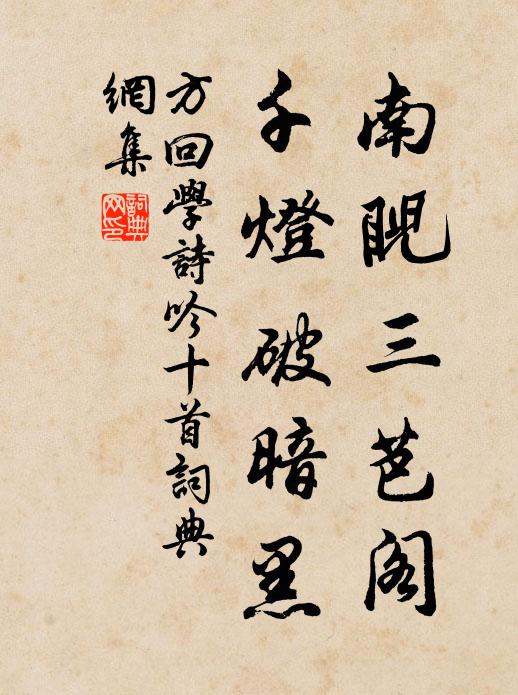 南睨三芭阁
千燈破暗黑
方回學詩吟十首詞典
網集
詞典網印